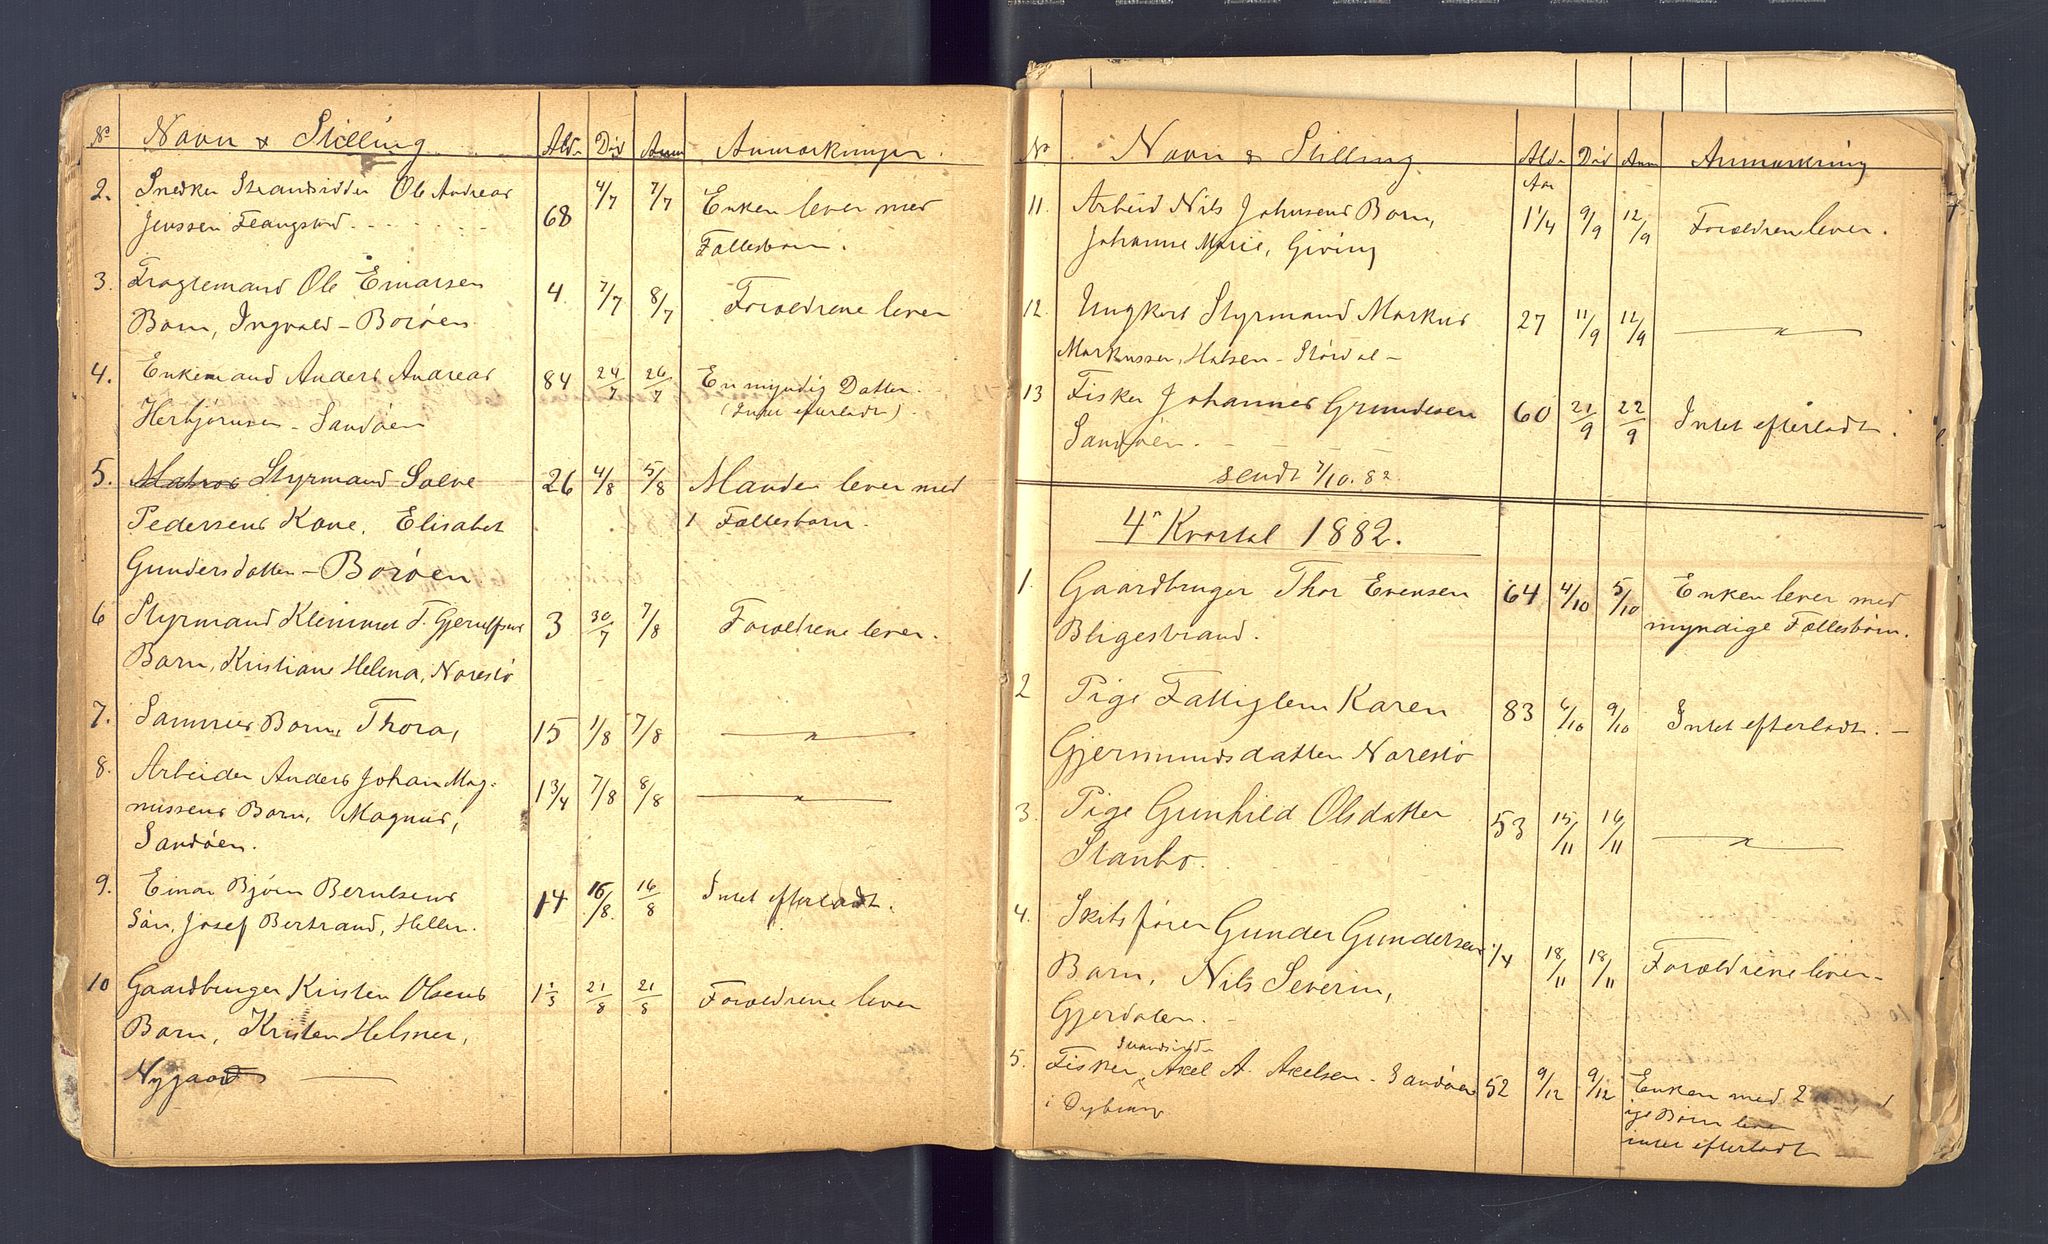 No Navn & Stilling Aldr Død Anm Anmærkninger.
2. Snedker Strandsidder Ole Andreas 68 4/7 7/7 Enken lever med
Jenssen Flangstad Fællesbørn.
3. Fragtemand Ole Einarsen 4 7/7 8/7 Forældrene lever
Barn, Ingvald - Borøen
4. Enkemand Anders Andreas 84 24/7 26/7 En myndig Datter
Herbjørnsen - Sandøen (Intet efterladt).
5. Matros Styrmand Salve 26 4/8 5/8 Manden lever med
Pedersens Kone, Elisabet 1 Fællesbarn.
Gundersdatter - Borøen
6 Styrmand Klemmet T. Gjerulfsens 3 30/7 7/8 Forældrene lever.
Barn, Kristiane Helena, Narestø
7. Sammes Barn, Thora, 15 1/8 7/8 — " —
8. Arbeider Anders Johan Mag- 1 3/4 7/8 8/8 — " —
nussens Barn, Magnus,
Sandøen.
9. Einar Bjørn Berntsens 14 15/8 16/8 Intet efterladt.
Søn, Josef Bertrand, Helle.
10 Gaardbruger Kristen Olsens 1 1/3 21/8 21/8 Forældrene lever
Barn, Kristen Helmer,
Nygaard
No Navn & Stilling Aldr Død Anm Anmærkning
Aar
11. Arbeid Nils Johnsens Barn, 1 1/4 9/9 12/9 Forældrene lever.
Johanne Marie, Giving
12. Ungkarl Styrmand Markus 27 11/9 12/9 — " —
Markussen, Halsen - Stördal -
13 Fisker Johannes Gundersen 60 21/9 22/9 Intet efterladt.
Sandøen.
sendt 7/10. 82
4de Kvartal 1882.
1. Gaardbruger Thor Evensen 64 4/10 5/10 Enken lever med
Bligestrand. myndige Fællesbørn.
2 Pige Fattiglem Karen 83 6/10 9/10 Intet efterladt. -
Gjermundsdatter Narestø
3. Pige Gunhild Olsdatter 53 15/11 16/11 — " —
Stanbo.
4. Skibsfører Gunder Gundersen 1/4 18/11 18/11 Forældrene lever -
Barn, Nils Severin,
Gjerdalen.
Strandsidder
5. Fisker, Axel A. Axelsen - Sandøen 52 9/12 9/12 Enken med 2
i Dybvaag ige Børn lever
intet efterladt